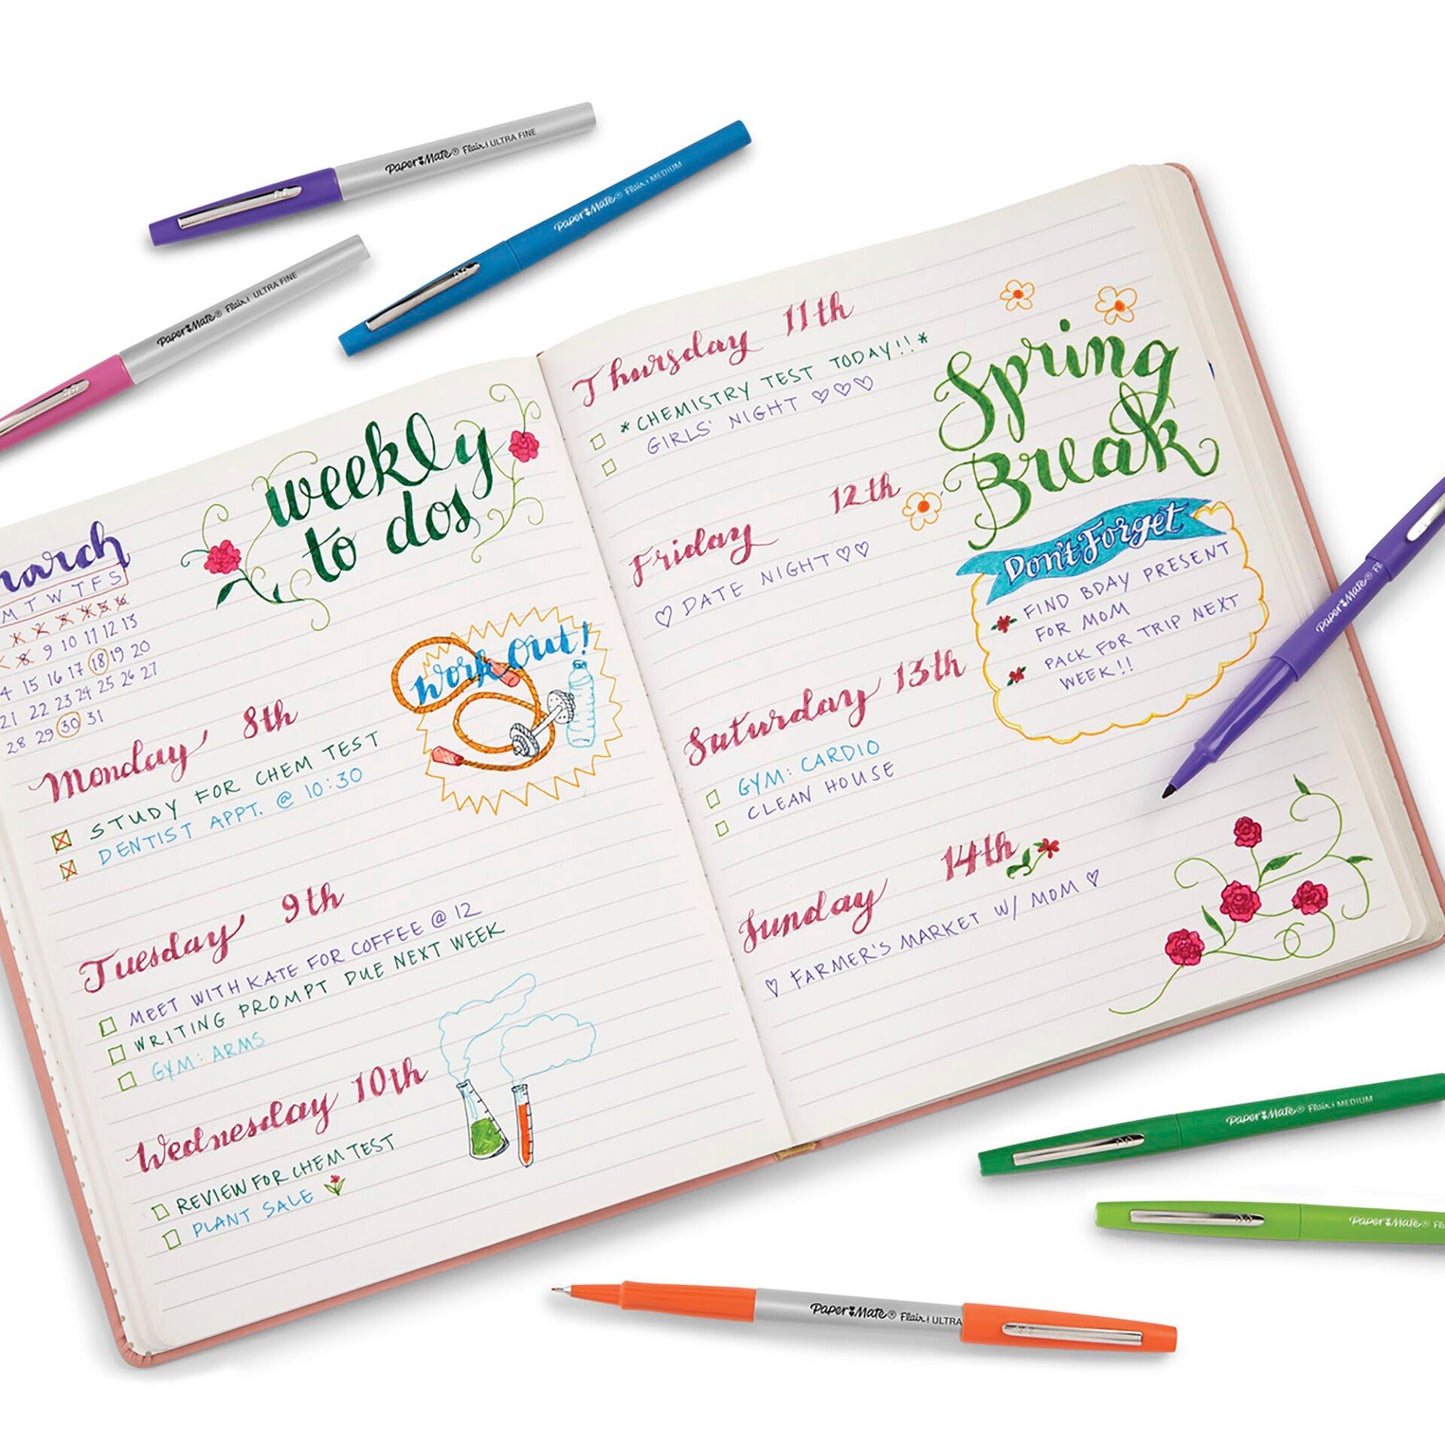 Paper Mate® Flair. ULTRA FINE
Paper Mate® Flair. MEDIUM
Paper Mate® Flair. ULTRA FINE
weekly
to dos
M T W T F S
9 10 11 12 13
14 15 16 17 18 19 20
21 22 23 24 25 26 27
28 29 30 31
Work Out!
Monday 8th
STUDY FOR CHEM TEST
DENTIST APPT. @ 10:30
Tuesday 9th
MEET WITH KATE FOR COFFEE @ 12
WRITING PROMPT DUE NEXT WEEK
GYM: ARMS
Wednesday 10th
REVIEW FOR CHEM TEST
PLANT SALE
Thursday 11th
*CHEMISTRY TEST TODAY!!*
GIRLS' NIGHT ♡♡♡
Friday 12th
♡ DATE NIGHT ♡♡
Saturday 13th
GYM: CARDIO
CLEAN HOUSE
Sunday 14th
♡ FARMER'S MARKET W/ MOM ♡
Spring
Break
Don't Forget
FIND BDAY PRESENT
FOR MOM
PACK FOR TRIP NEXT
WEEK!!
Paper Mate®
Paper Mate® Flair. MEDIUM
Paper Mate®
Paper Mate® Flair. ULTRA